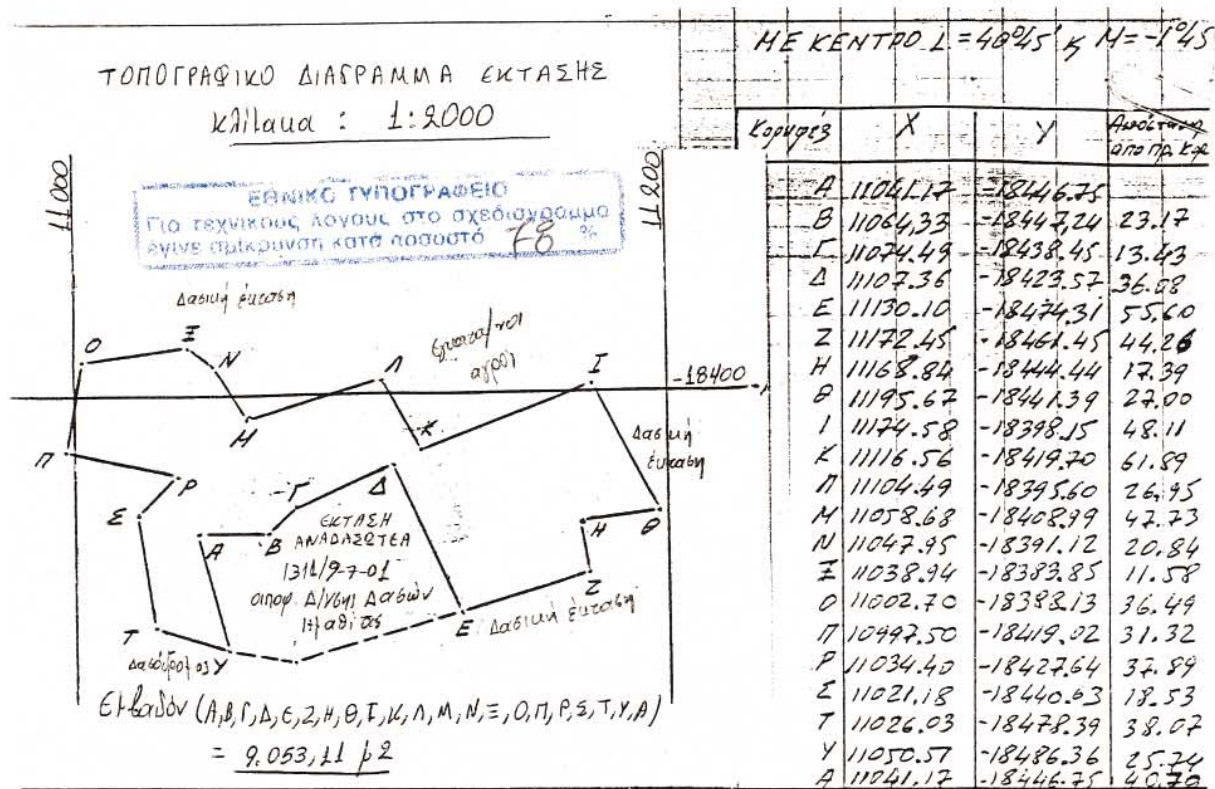 ΤΟΠΟΓΡΑΦΙΚΟ ΔΙΑΓΡΑΜΜΑ ΕΚΤΑΣΗΣ
κλίμακα : 1:2000
11000
11200
ΕΘΝΙΚΟ ΤΥΠΟΓΡΑΦΕΙΟ
Για τεχνικούς λόγους στο σχεδιάγραμμα
έγινε σμίκρυνση κατά ποσοστό 78 %
Δασική έκταση
αγροί
-18400
Ο
Ξ
Ν
Μ
Λ
Κ
Ι
Π
Ρ
Σ
Α
Β
Γ
Δ
Η
Θ
Ζ
Ε
Τ
Υ
Δασική
έκταση
ΕΚΤΑΣΗ
ΑΝΑΔΑΣΩΤΕΑ
1311/9-7-01
αποφ. Δ/νσης Δασών
Ημαθίας
Δασική έκταση
Δασόδρομος
Εμβαδόν (Α,Β,Γ,Δ,Ε,Ζ,Η,Θ,Ι,Κ,Λ,Μ,Ν,Ξ,Ο,Π,Ρ,Σ,Τ,Υ,Α)
= 9.053,11 μ2
ΜΕ ΚΕΝΤΡΟ L = 40°45' κ Μ = -1°45
Κορυφές Χ Υ Απόσταση
απο πρ. Κορ
Α 11041.17 -18446.75
Β 11064,33 -18447,24 23.17
Γ 11074.49 -18438.45 13.43
Δ 11107.36 -18423.57 36.08
Ε 11130.10 -18474.31 55.60
Ζ 11172.45 -18461.45 44.26
Η 11168.84 -18444.44 17.39
Θ 11195.67 -18441.39 27.00
Ι 11174.58 -18398.15 48.11
Κ 11116.56 -18419.70 61.89
Λ 11104.49 -18395.60 26,95
Μ 11058.68 -18408.99 47.73
Ν 11047.95 -18391.12 20.84
Ξ 11038.94 -18383.85 11.58
Ο 11002.70 -18388.13 36.49
Π 10997.50 -18419.02 31.32
Ρ 11034.40 -18427.64 37.89
Σ 11021.18 -18440.63 18.53
Τ 11026.03 -18478.39 38.07
Υ 11050.57 -18486.36 25.74
Α 11041.17 -18446.75 40.70